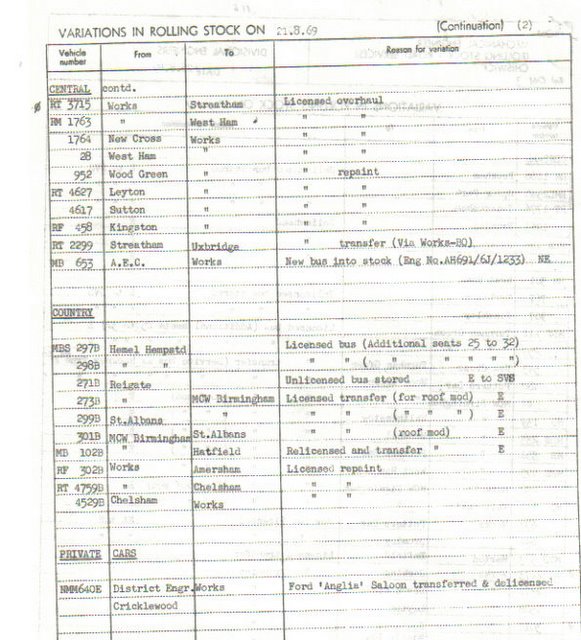 VARIATIONS IN ROLLING STOCK ON 21.8.69 (Continuation) (2)
Vehicle number From To Reason for variation
CENTRAL contd.
RT 3715 Works Streatham Licensed overhaul
RM 1763 " West Ham " "
1764 New Cross Works " "
28 West Ham " " "
952 Wood Green " " repaint
RT 4627 Leyton " " "
4617 Sutton " " "
RF 458 Kingston " " "
RT 2299 Streatham Uxbridge " transfer (Via Works-BO)
MB 653 A.E.C. Works New bus into stock (Eng No.AH691/6J/1233) NE
COUNTRY
MBS 297B Hemel Hempstd Licensed bus (Additional seats 25 to 32)
298B " " " " ( " " " " ")
271B Reigate Unlicensed bus stored E to SVB
273B " MCW Birmingham Licensed transfer (for roof mod) E
299B St.Albans " " " ( " " " ) E
301B MCW Birmingham St.Albans " " (roof mod) E
MB 102B " Hatfield Relicensed and transfer " E
RF 302B Works Amersham Licensed repaint
RT 4759B " Chelsham " "
4529B Chelsham Works " "
PRIVATE CARS
NMM640E District Engr. Works Ford 'Anglia' Saloon transferred & delicensed
Cricklewood